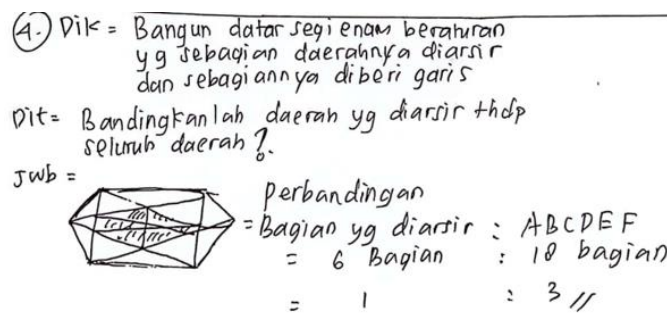 4.) Dik = Bangun datar segi enam beraturan
yg sebagian daerahnya diarsir
dan sebagiannya diberi garis
Dit = Bandingkanlah daerah yg diarsir thdp
seluruh daerah ?.
Jwb =
Perbandingan
= Bagian yg diarsir : ABCDEF
= 6 Bagian : 18 bagian
= 1 : 3 //